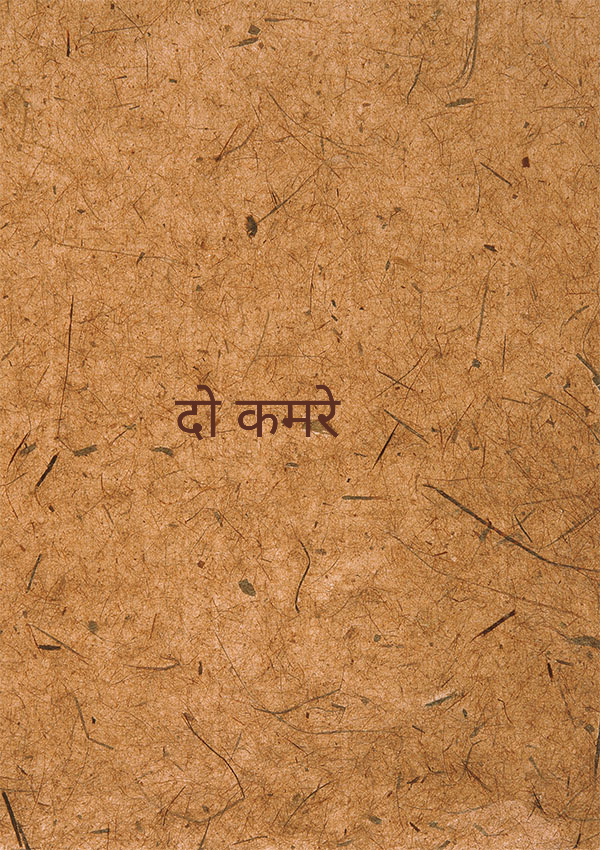 दो कमरे